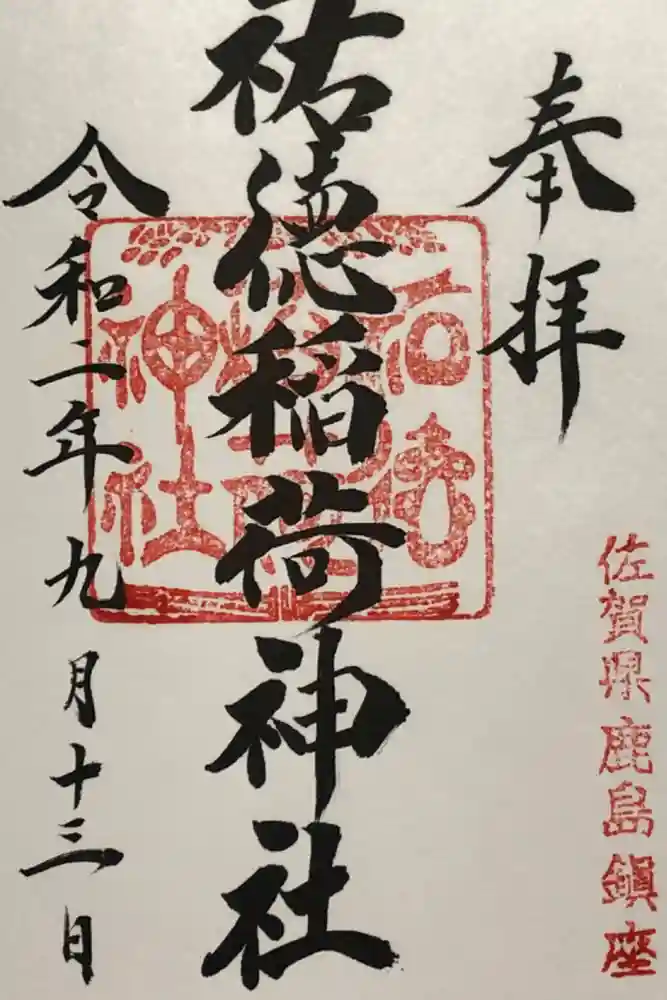 奉拝
佐賀県鹿島鎮座
祐徳稲荷神社
祐徳
稲荷
神社
令和二年九月十三日